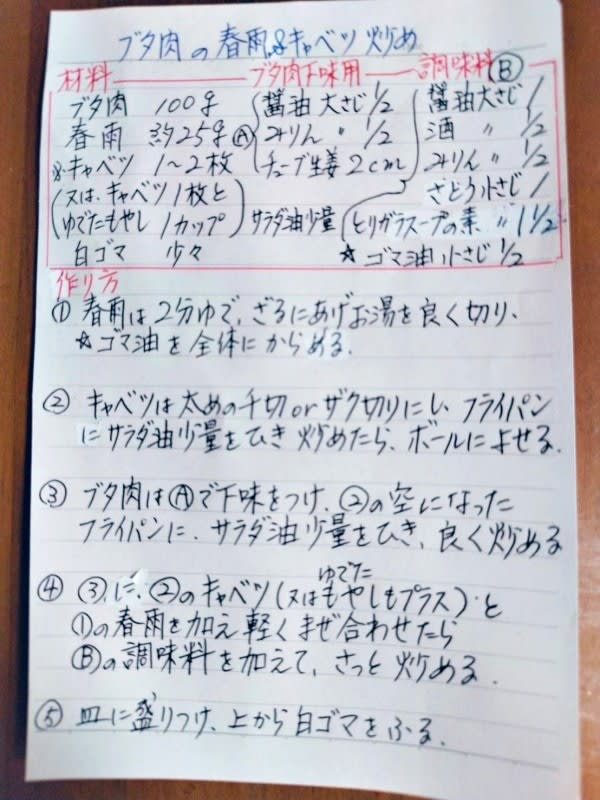 ブタ肉の春雨&キャベツ炒め
材料 ブタ肉下味用 調味料Ⓑ
ブタ肉 100g 醤油 大さじ1/2 醤油大さじ1
春雨 約25g Ⓐ みりん 〃 1/2 酒 〃 1/2
※キャベツ 1〜2枚 チューブ生姜2cm みりん 〃 1/2
(又は、キャベツ1枚と さとう小さじ1
ゆでたもやし1カップ) サラダ油少量 とりガラスープの素 〃 1 1/2
白ゴマ 少々 ☆ゴマ油小さじ1/2
作り方
① 春雨は2分ゆで、ざるにあげお湯を良く切り、
☆ゴマ油を全体にからめる.
② キャベツは太めの千切orザク切りにし、フライパン
にサラダ油少量をひき炒めたら、ボールによせる.
③ ブタ肉はⒶで下味をつけ、②の空になった
フライパンに、サラダ油少量をひき、良く炒める
④ ③に、②のキャベツ(又はゆでたもやしもプラス)と
①の春雨を加え軽くまぜ合わせたら
Ⓑの調味料を加えて、さっと炒める.
⑤ 皿に盛りつけ、上から白ゴマをふる.